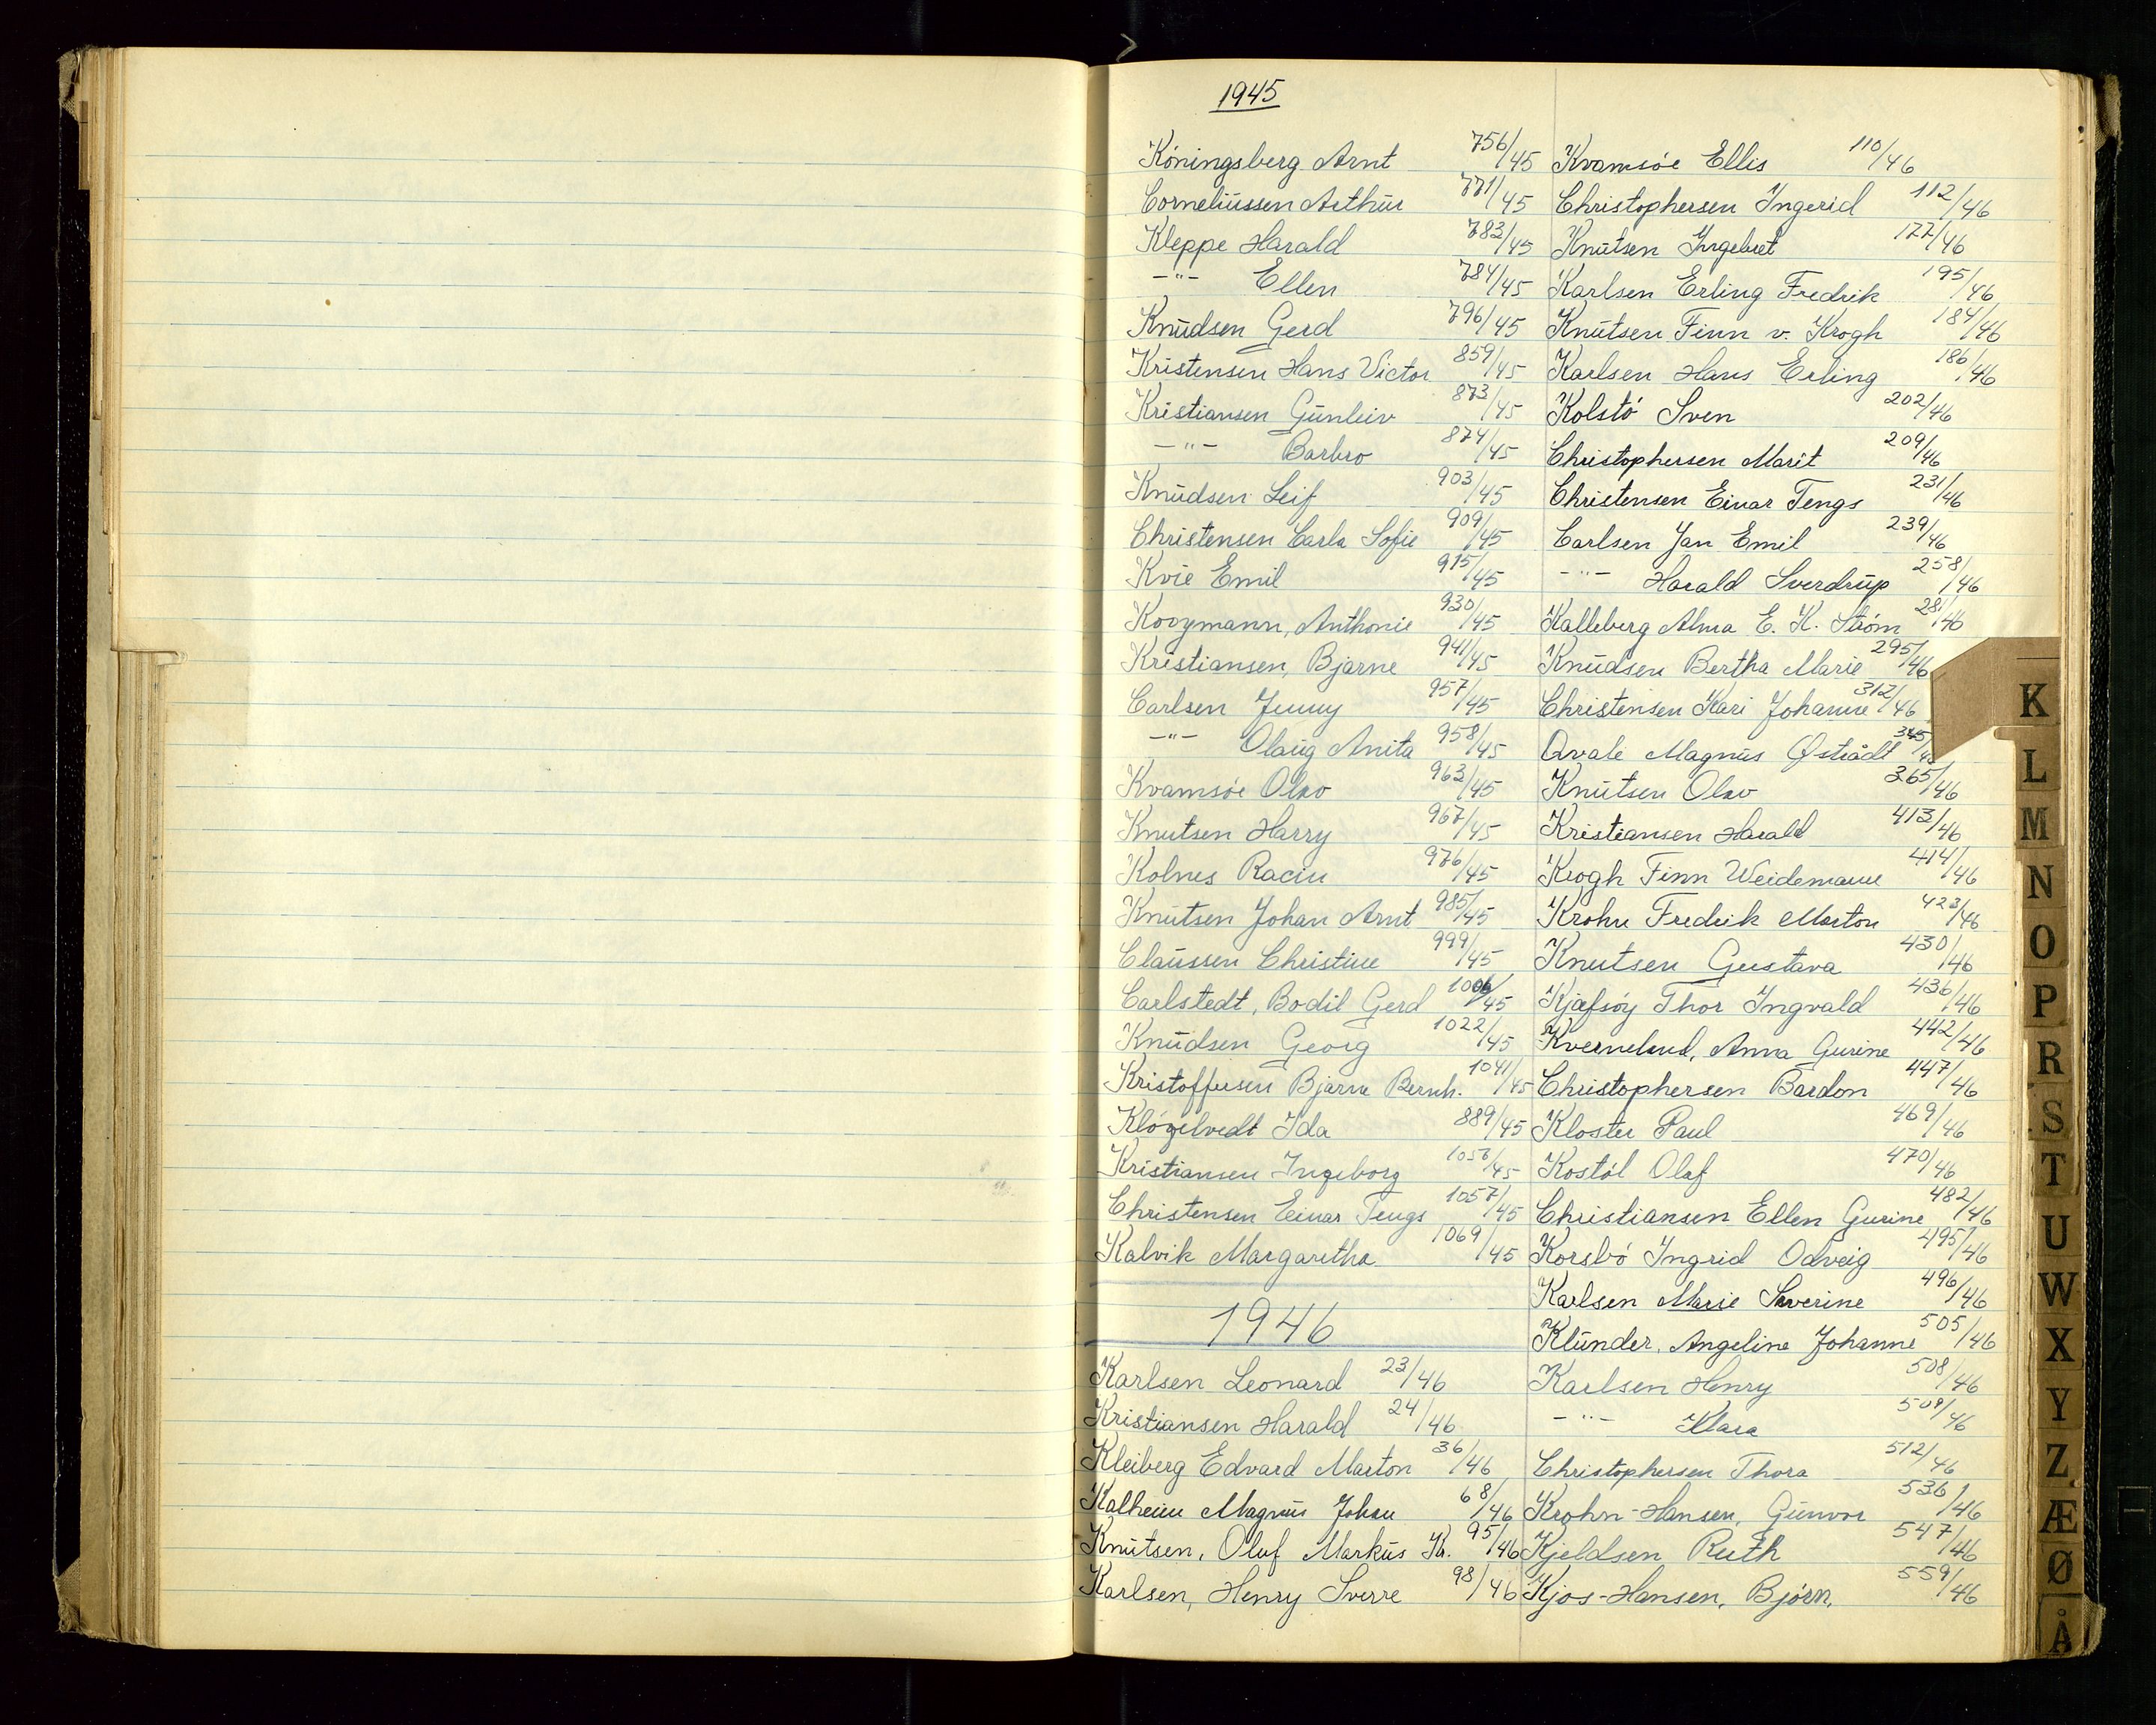 1945
Köningsberg Arnt 756/45
Corneliussen Arthur 771/45
Kleppe Harald 783/45
-"- Ellen 784/45
Knudsen Gerd 796/45
Kristensen Hans Victor 859/45
Kristiansen Gunleiv 873/45
-"- Barbro 874/45
Knudsen Leif 903/45
Christensen Carla Sofie 909/45
Kvie Emil 915/45
Kooymann, Anthonie 930/45
Kristiansen, Bjarne 941/45
Carlsen Jenny 957/45
-"- Olaug Anita 958/45
Kvamsöe Olav 963/45
Knutsen Harry 967/45
Kolnes Racin 976/45
Knutsen Johan Arnt 985/45
Claussen Christine 999/45
Carlstedt, Bodil Gerd /45
Knudsen Georg 1022/45
Kristoffersen Bjarne Bernh. 1041/45
Klögelvedt Ida 889/45
Kristiansen Ingeborg /45
Christensen Einar Tengs 1057/45
Kalvik Margaretha 1069/45
1946
Karlsen Leonard 23/46
Kristiansen Harald 24/46
Kleiberg Edvard Marton 36/46
Kalheim Magnus Johan 68/46
Knutsen, Oluf Markus Kr. 95/46
Karlsen, Henry Sverre 98/46
Kvamsöe Ellis 110/46
Christophersen Ingerid 112/46
Knutsen Ingebret 177/46
Karlsen Erling Fredrik 195/46
Knutsen Finn v. Krogh 184/46
Karlsen Hans Erling 186/46
Kolstö Sven 202/46
Christophersen Marit 209/46
Christensen Einar Tengs 231/46
Carlsen Jan Emil 239/46
-"- Harald Sverdrup 258/46
Kalleberg Alma E. K. Ström 281/46
Knudsen Bertha Marie 295/46
Christensen Kari Johanne 312/46
Qvale Magnus Østrådt 345/
Knutsen Olav 365/46
Kristiansen Harald 413/46
Krogh Finn Weidemann 414/46
Krohn Fredrik Marton 423/46
Knutsen Gustava 430/46
Kjæfsöy Thor Ingvald 436/46
Kverneland, Anna Gurine 442/46
Christophersen Bardon 447/46
Kloster Paul 469/46
Kostöl Olaf 470/46
Christiansen Ellen Gurine 482/46
Korsbö Ingrid Odveig 495/46
Karlsen Marie Severine 496/46
Klünder, Angeline Johanne 505/46
Karlsen Henry 508/46
-"- Klara 509/46
Christophersen Thora 512/46
Krohn-Hansen, Gunvor 536/46
Kjeldsen Ruth 547/46
Kjos-Hansen, Björn, 559/46
K
L
M
N
O
P
R
S
T
U
W
X
Y
Z
Æ
Ø
Å